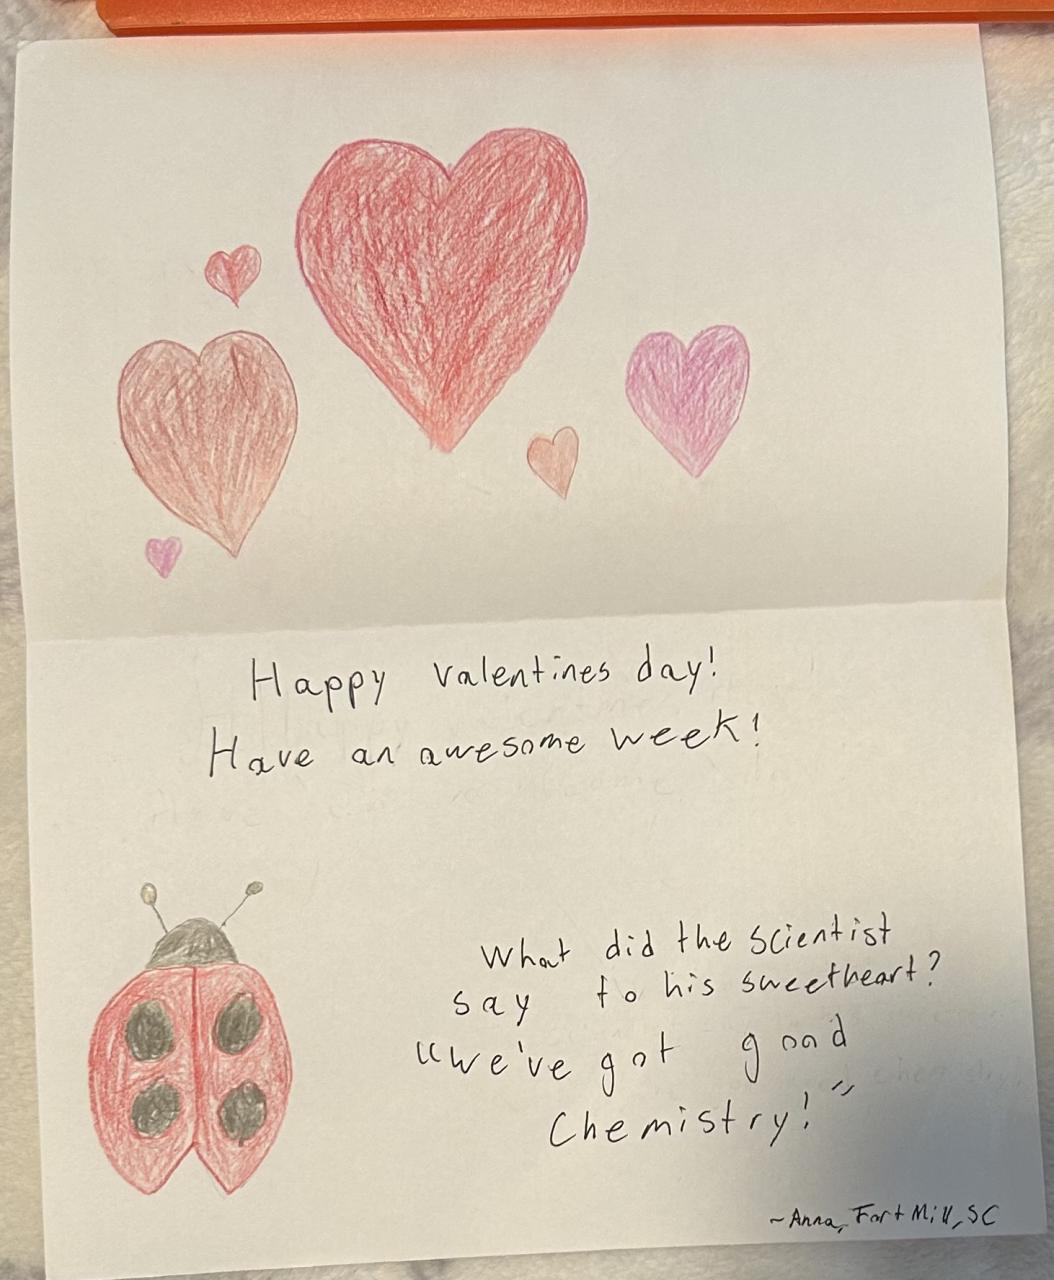 Happy valentines day!
Have an awesome week!
What did the scientist
say to his sweetheart?
"We've got good
Chemistry!"
~Anna, Fort Mill, SC